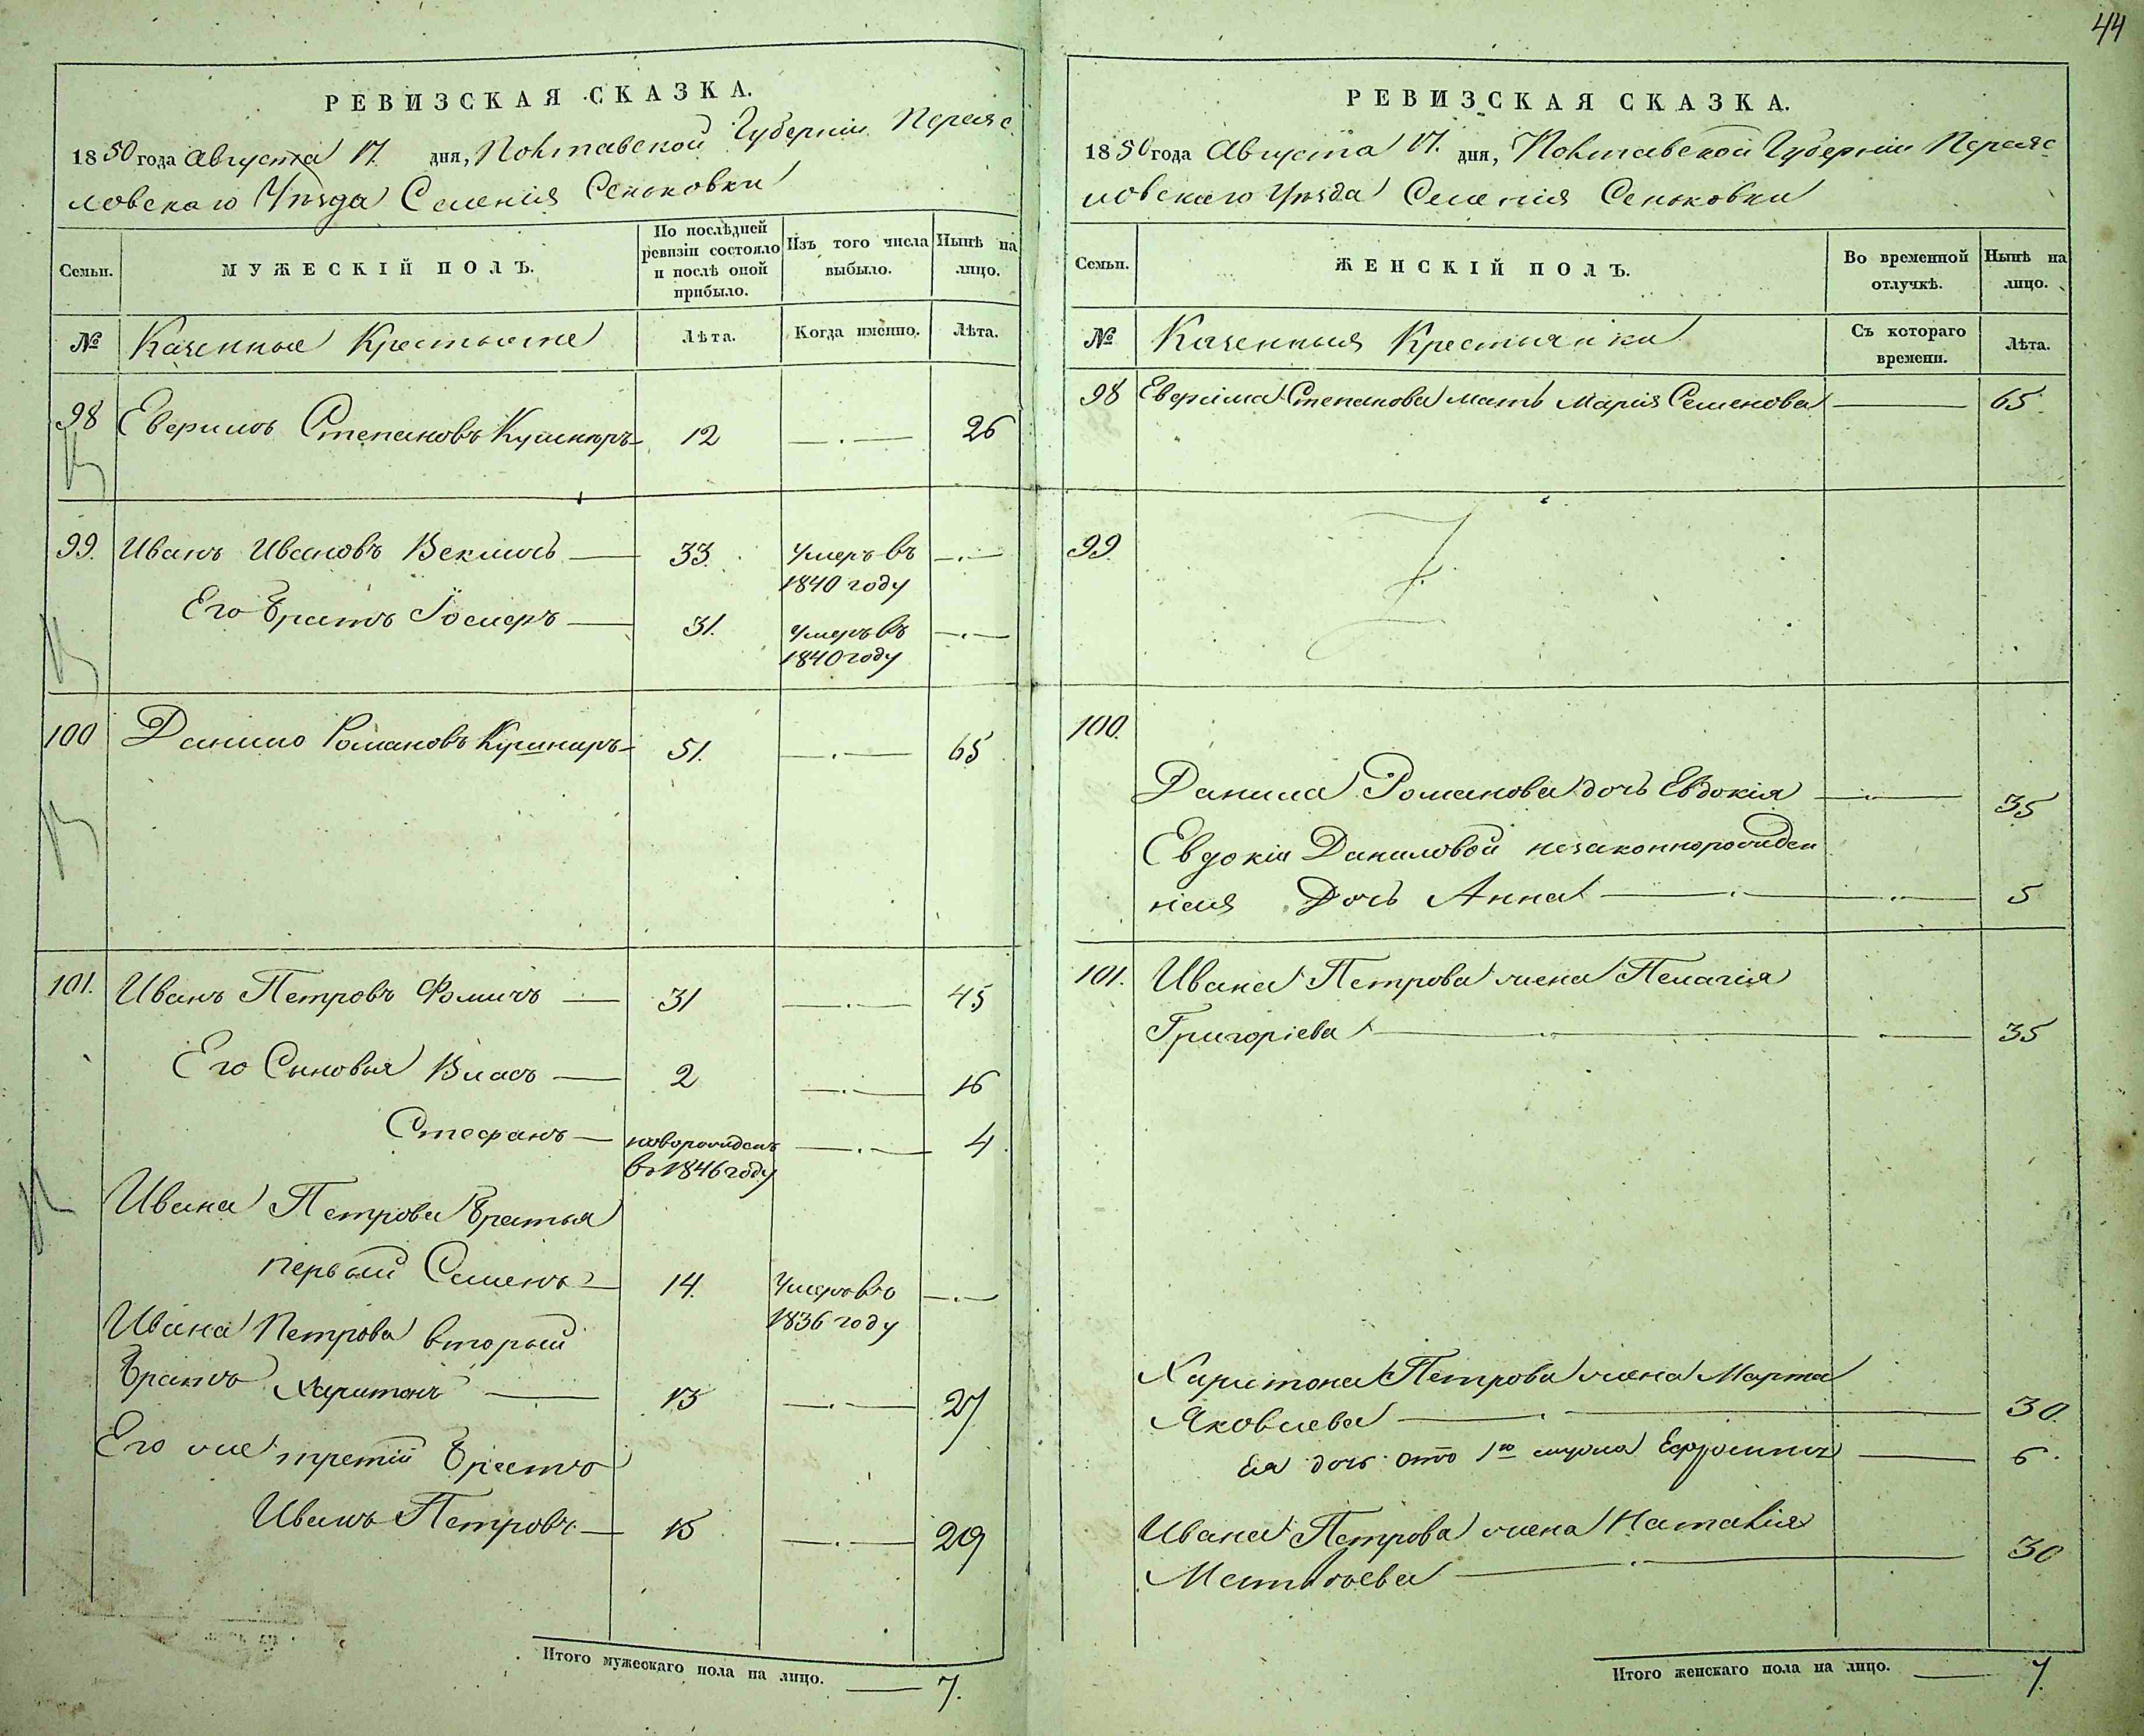 44
РЕВИЗСКАЯ СКАЗКА.
1850 года Августа 17. дня, Полтавской Губерніи Переяс
ловскаго Уѣзда Селенія Сеньковки
Семьи.
МУЖЕСКІЙ ПОЛЪ.
По послѣдней ревизіи состояло и послѣ оной прибыло.
Изъ того числа выбыло.
Нынѣ на лицо.
№
Казенные Крестьяне
Лѣта.
Когда именно.
Лѣта.
98 Степановъ Кушниръ 12 26
99. Иванъ Ивановъ Векличь 33. Умеръ въ
1840 году
Его братъ Іосифъ 31. Умеръ въ
1840 году
100 Данило Романовъ Кушниръ 51. 65
101. Иванъ Петровъ Фомичъ 31 45
Его Сыновья Власъ 2 16
Стефанъ новорожденъ 4
въ 1846 году
Ивана Петрова братья
первый Семенъ 14. Умеръ въ
1836 году
Ивана Петрова вторый
братъ Харитонъ 13 27
Его же третій братъ
Иванъ Петровъ 15 29
Итого мужескаго пола на лицо. 7.
РЕВИЗСКАЯ СКАЗКА.
1850 года Августа 17. дня, Полтавской Губерніи Переяс
ловскаго Уѣзда Селенія Сеньковки
Семьи.
ЖЕНСКІЙ ПОЛЪ.
Во временной отлучкѣ.
Нынѣ на лицо.
№
Казенныя Крестьянки
Съ котораго времени.
Лѣта.
98 Степанова мать Марія Семенова 65
99.
100.
Данила Романова дочь Евдокія 35
Евдокіи Даниловой незаконнорожден
ная Дочь Анна 5
101. Ивана Петрова жена Пелагія
Григоріева 35
Харитона Петрова жена Марта
Яковлева 30.
Ея дочь отъ 1го мужа 6.
Ивана Петрова жена Наталія
Матвѣева 30
Итого женскаго пола на лицо. 7.